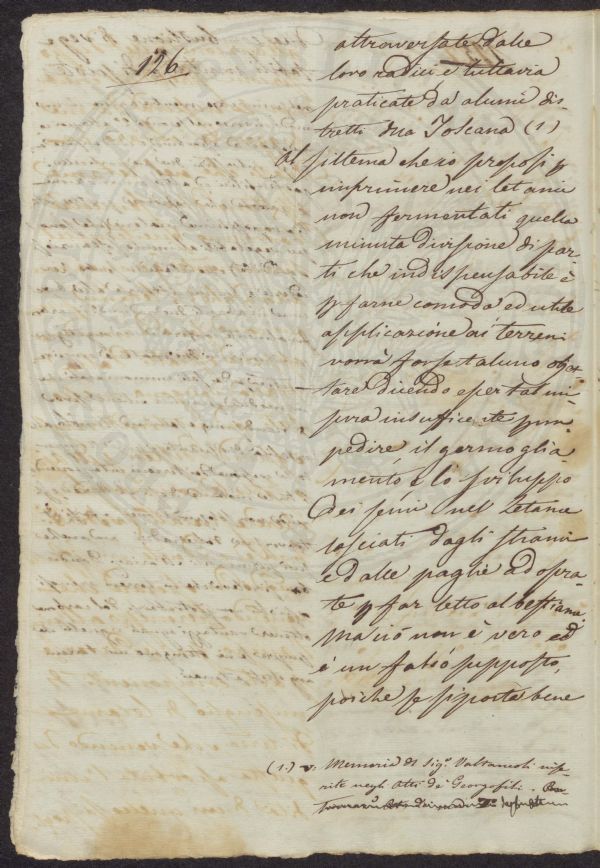 126
attraversate dalle
loro radici e tuttavia
praticate da alcuni dis-
tretti della Toscana (1)
Al sistema che io proposi p
imprimere nei letami
non fermentati quella
minuta divisione di par-
ti che indispensabile è
p farne comoda ed utile
applicazione ai terreni
vorrà forse taluno obiet-
tare dicendo esser tal mi-
sura insufficiente p im-
pedire il germoglia-
mento e lo sviluppo
dei semi nel letame
lasciati dagli strami
e dalle paglie adopra-
te p far letto al bestiame
Ma ciò non è vero ed
è un falso supposto,
poiche se si porta bene
(1) v. Memoria del Sig.r inse-
rite negli Atti de' Georgofili.